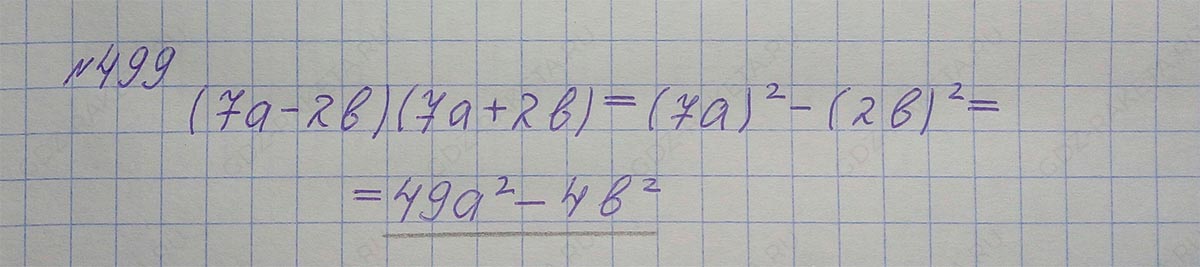 №499
(7a-2b)(7a+2b)=(7a)²-(2b)²=
=49a²-4b²